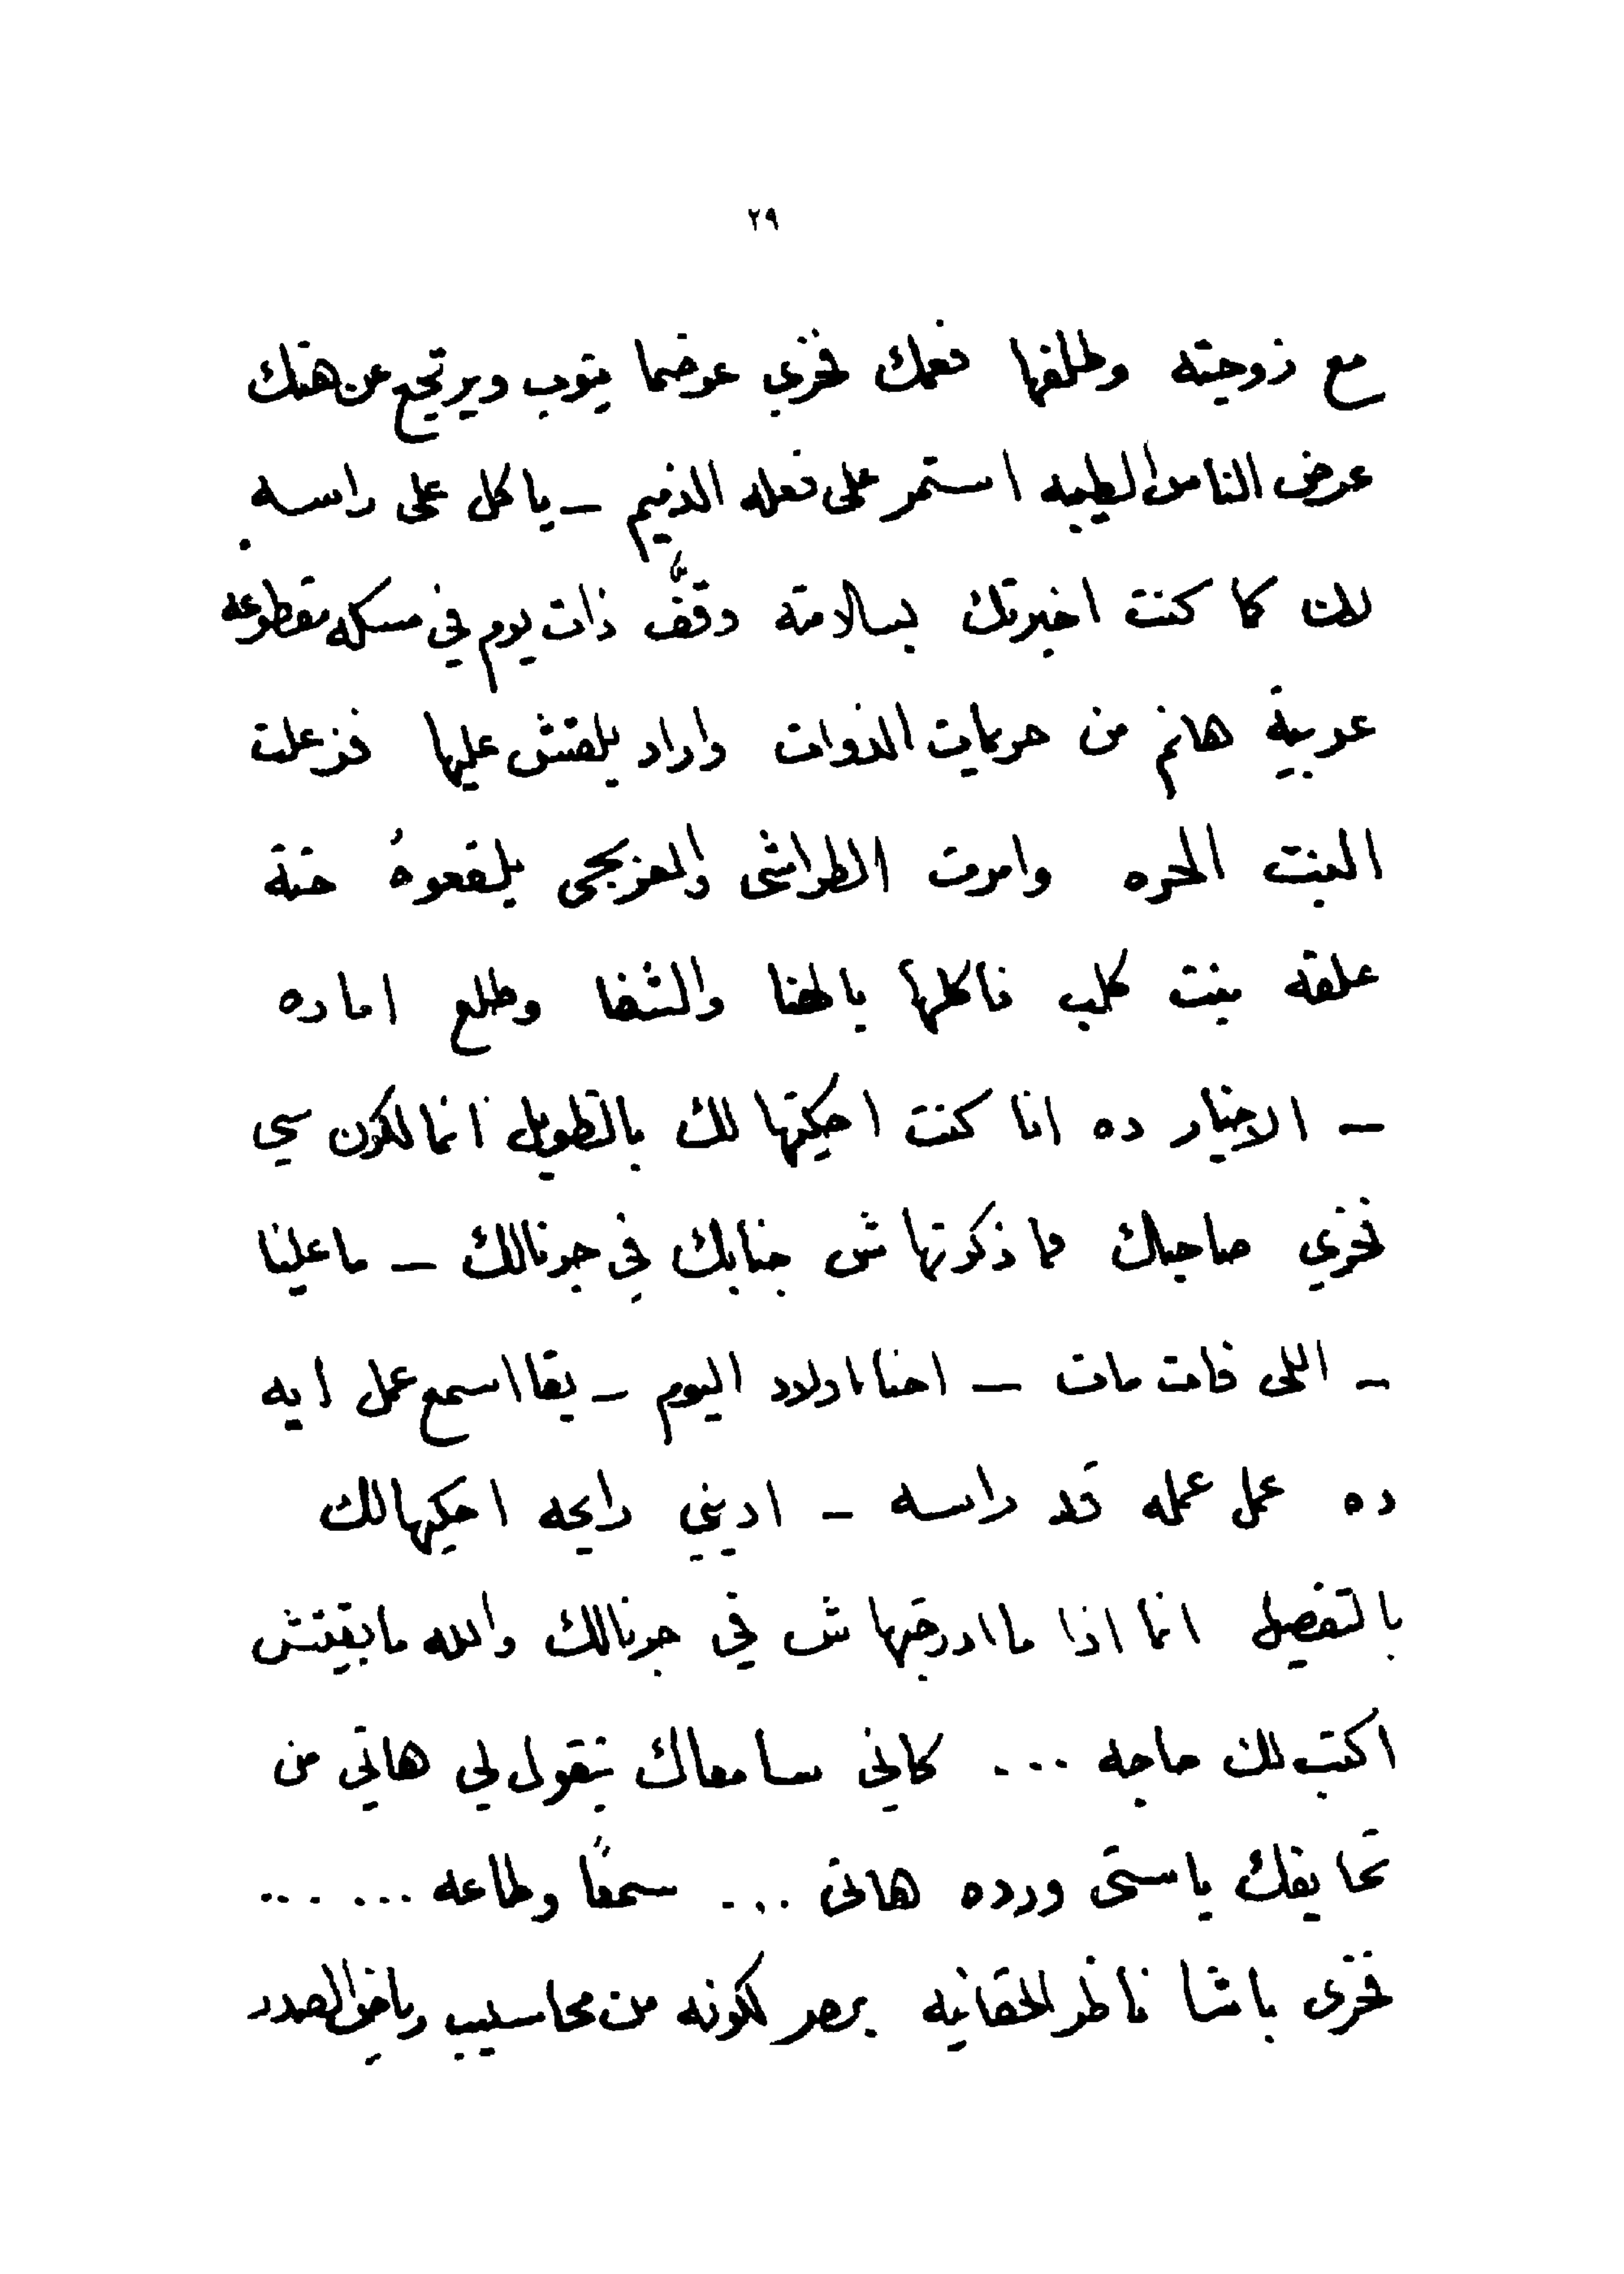 ٢٩
مع زوجته وطلقها فعمك فخري عوضما يتوب ويرتجع عن هتك
عرض الناس الطيبه استمر على فعله الذميم – ياكل على راسه
لانك كما كنت اخبرتك بسلامته وقف ذات يوم في سكه مقطوعه
عربية هانم من حريمات الذوات واراد يلقش عليها فزعلت
البنت الحره وامرت الطواشى والعربجى يلقعوهُ حتة
علقه بنت كلب فاكلها بالهنا والشفا وطلع اماده
– الاخبار ده انا كنت احكيتها لك بالتطويل انما لكون سي
فخري صاحبك فما ذكرتهاش جنابك في جرنالك – ما علينا
– اللى فات مات – احنا اولاد اليوم – بقا اسمع عمل ايه
ده عمل عمله قد راسه – اديني رايحه احكيها لك
بالتفصيل انما اذا ما ادرجتهاش في جرنالك والله ما بقيتش
اكتب لك حاجه ... كاني سامعاك بتقول لي هاتي من
تحايفك ياستى ورده هاتى ... سمعًا وطاعه ......
فخرى باشا ناظر الحقانيه بمصر لكونه من محاسيب رياض الصدد